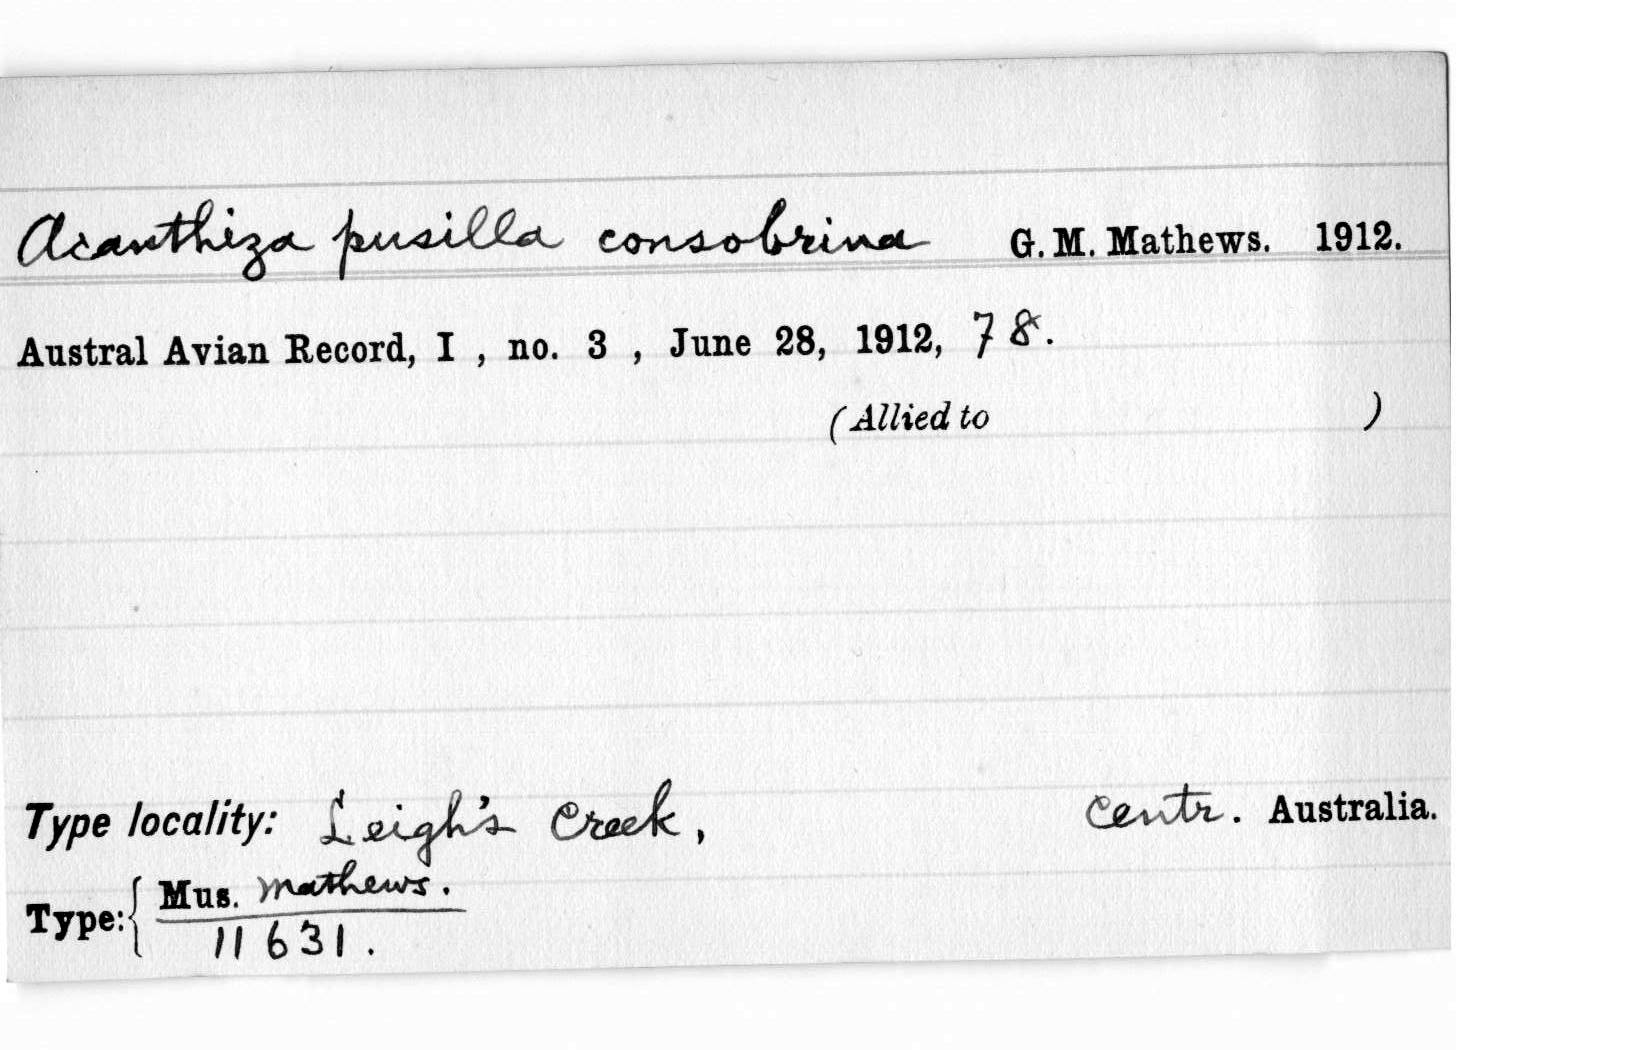 Acanthiza pusilla consobrina G. M. Mathews. 1912.
Austral Avian Record, I , no. 3 , June 28, 1912, 78.
(Allied to )
Type locality: Leigh's Creek, Centr. Australia.
Type: { Mus. Mathews.
11631.